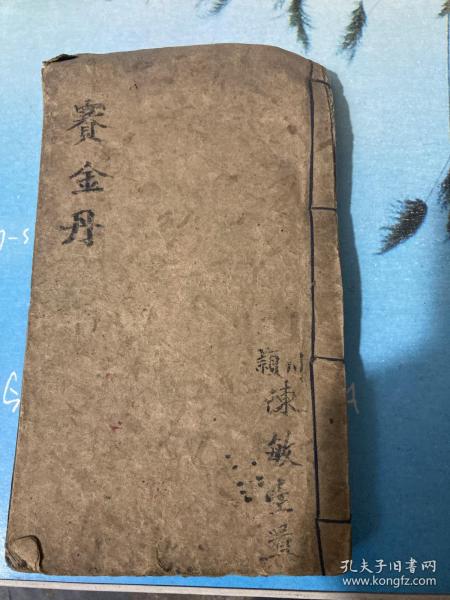 賽金丹
潁川
陳敏堂
孔夫子旧书网
www.kongfz.com